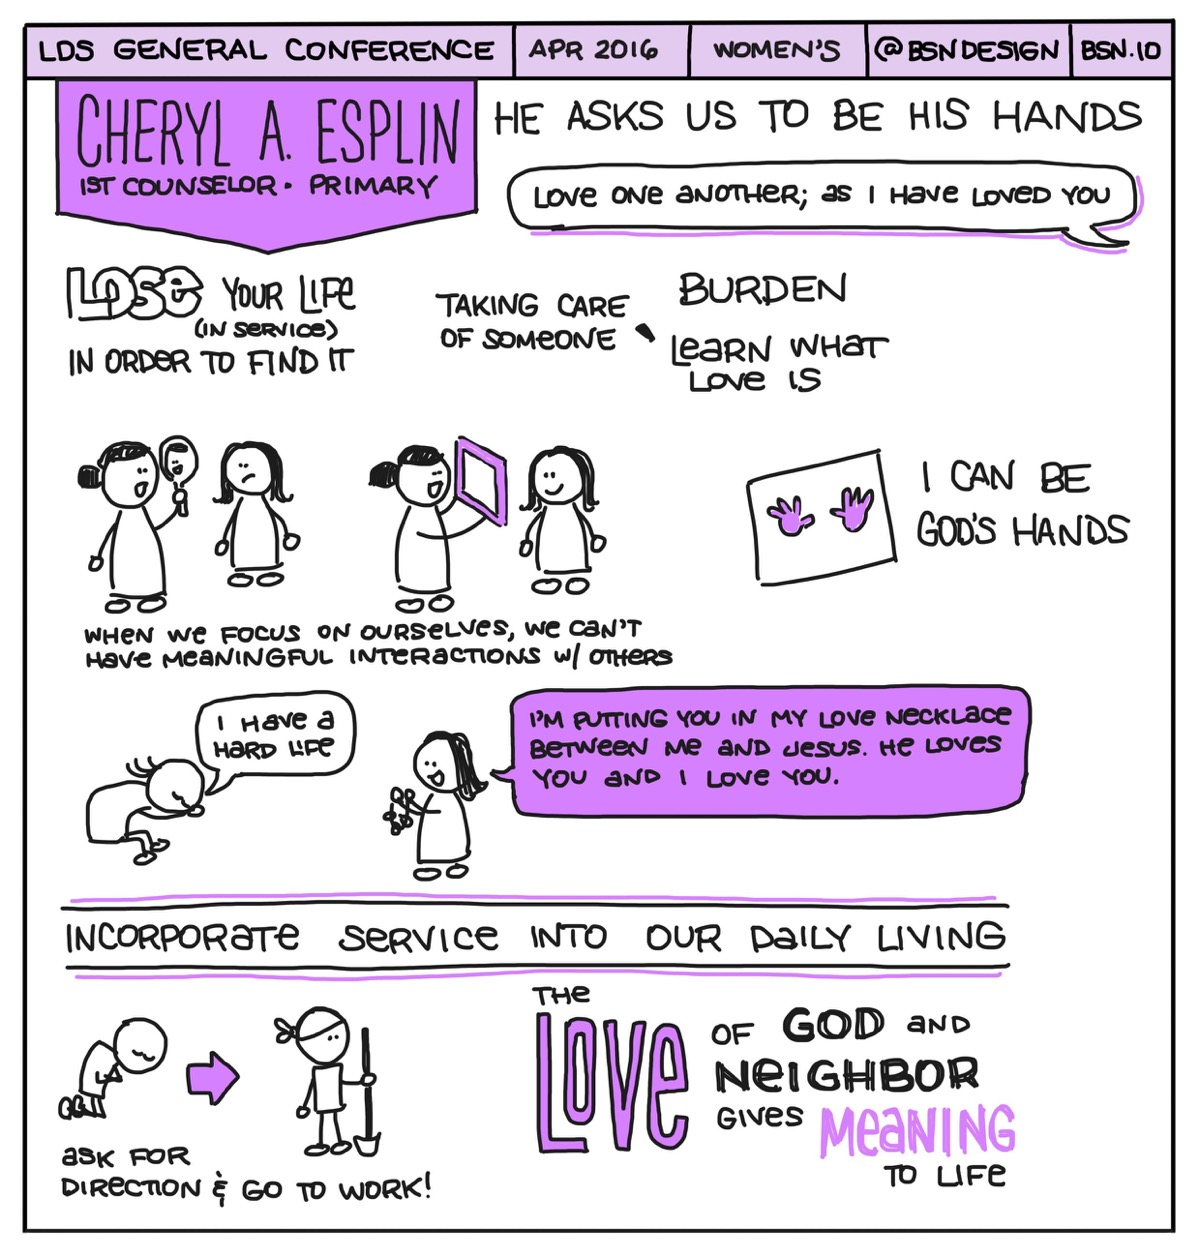 LDS GENERAL CONFERENCE
APR 2016
WOMEN'S
@BSNDESIGN
BSN.IO
CHERYL A. ESPLIN
1ST COUNSELOR · PRIMARY
HE ASKS US TO BE HIS HANDS
LOVE ONE ANOTHER; AS I HAVE LOVED YOU
LOSE YOUR LIFE
(IN SERVICE)
IN ORDER TO FIND IT
TAKING CARE
OF SOMEONE
BURDEN
LEARN WHAT
LOVE IS
I CAN BE
GOD'S HANDS
WHEN WE FOCUS ON OURSELVES, WE CAN'T
HAVE MEANINGFUL INTERACTIONS W/ OTHERS
I HAVE A
HARD LIFE
I'M PUTTING YOU IN MY LOVE NECKLACE
BETWEEN ME AND JESUS. HE LOVES
YOU AND I LOVE YOU.
INCORPORATE SERVICE INTO OUR DAILY LIVING
ASK FOR
DIRECTION & GO TO WORK!
THE
LOVE OF GOD AND
NEIGHBOR
GIVES MEANING
TO LIFE